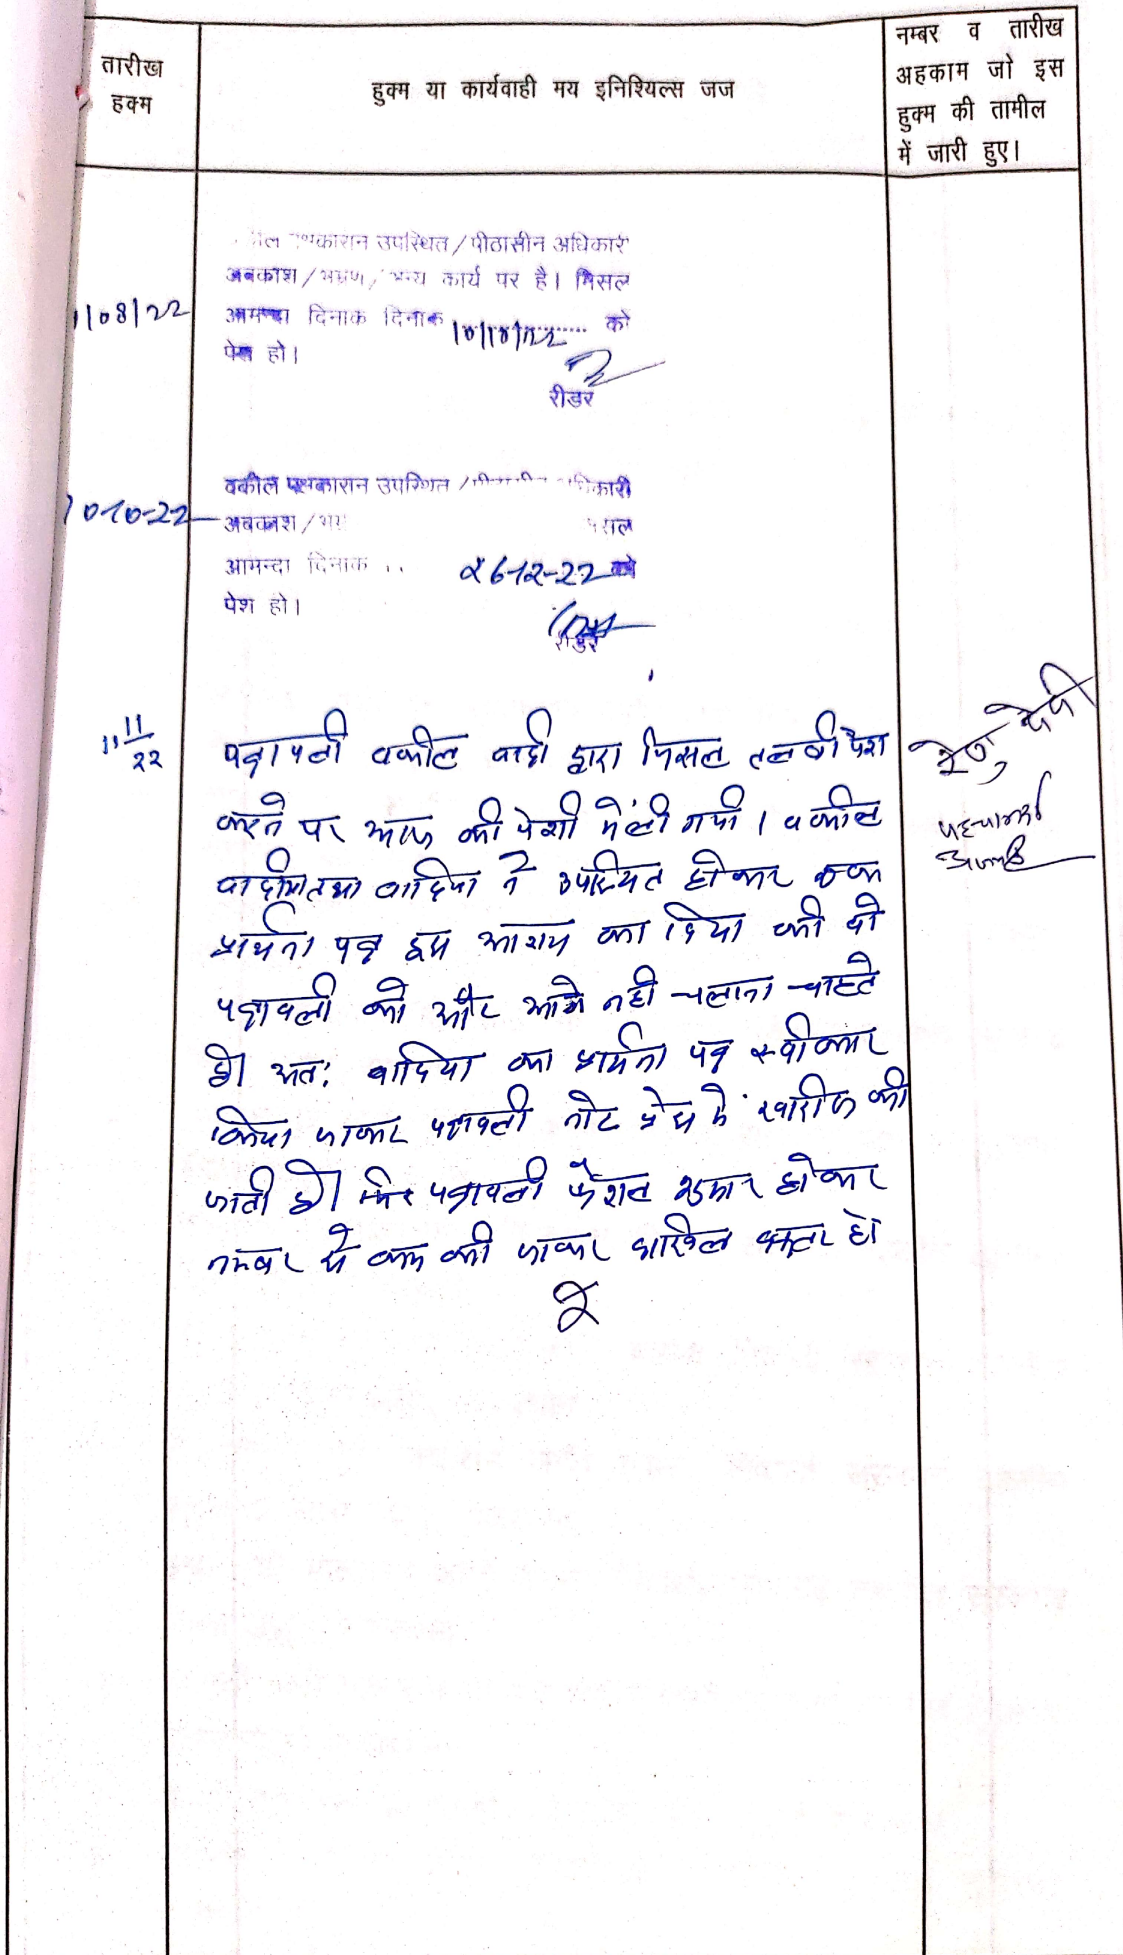 तारीख
हुक्म
हुक्म या कार्यवाही मय इनिश्यिल्स जज
नम्बर व तारीख
अहकाम जो इस
हुक्म की तामील
में जारी हुए।
उपस्थित/पीठासीन अधिकारी
अवकाश/भ्रमण/अन्य कार्य पर है। मिसल
/08/22
आमन्दा दिनाक दिनाक 10/10/22 को
पेश हो।
रीडर
वकील पक्षकारान उपस्थित
10-10-22
अवकाश/
आमन्दा दिनाक .. 26-12-22 को
पेश हो।
रीडर
11/11/22
पत्रावली वकील वादी द्वारा मिसल तलबी पेश
करने पर आज की पेशी में ली गयी। वकील
वादी तथा वादिया ने उपस्थित होकर एक
प्रार्थना पत्र इस आशय का दिया की वो
पत्रावली को और आगे नही चलाना चाहते
है। अतः वादिया का प्रार्थना पत्र स्वीकार
किया जाकर पत्रावली नोट प्रेस में खारीज की
जाती है। पत्रावली फैशल शुमार होकर
नम्बर से कम की जाकर दाखिल दफ्तर हो